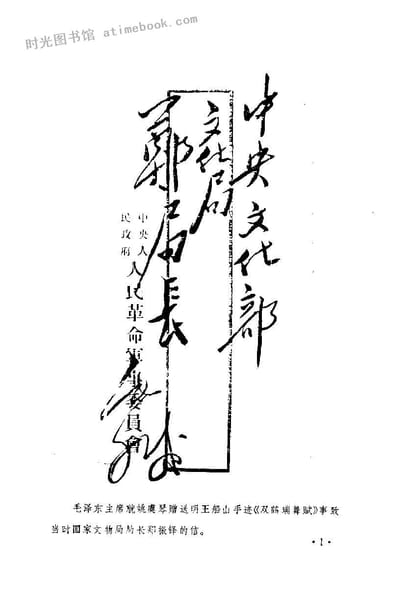 时光图书馆 atimebook.com
中央文化部
文化局
鄭局長
中央人
民政府
人民革命軍事委員會
毛泽东主席就姚虞琴赠送明王船山手迹《双鹤瑞舞赋》事致
当时国家文物局局长郑振铎的信。
·1·